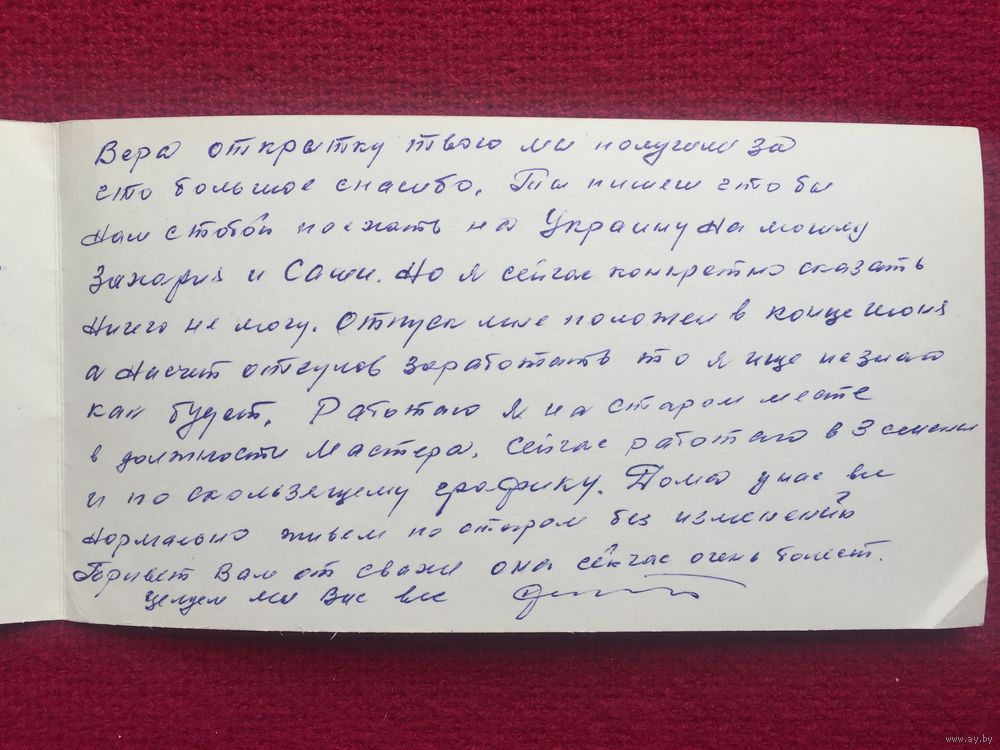 Вера открытку твою мы получили за
что большое спасибо. Ты пишеш что бы
нам с тобой поехать на Украину на могилу
Захария и Саши. Но я сейчас конкретно сказать
ничего не могу. Отпуск мне положен в конце июня
а насчет отгулов заработать то я ище не знаю
как будет. Работаю я на старом месте
в должности мастера. Сейчас работаю в 3 смены
и по скользящему графику. Дома у нас все
нормально живем по старом без изменений
Привет Вам от свахи она сейчас очень болеет.
Целуем мы Вас все
www.ay.by